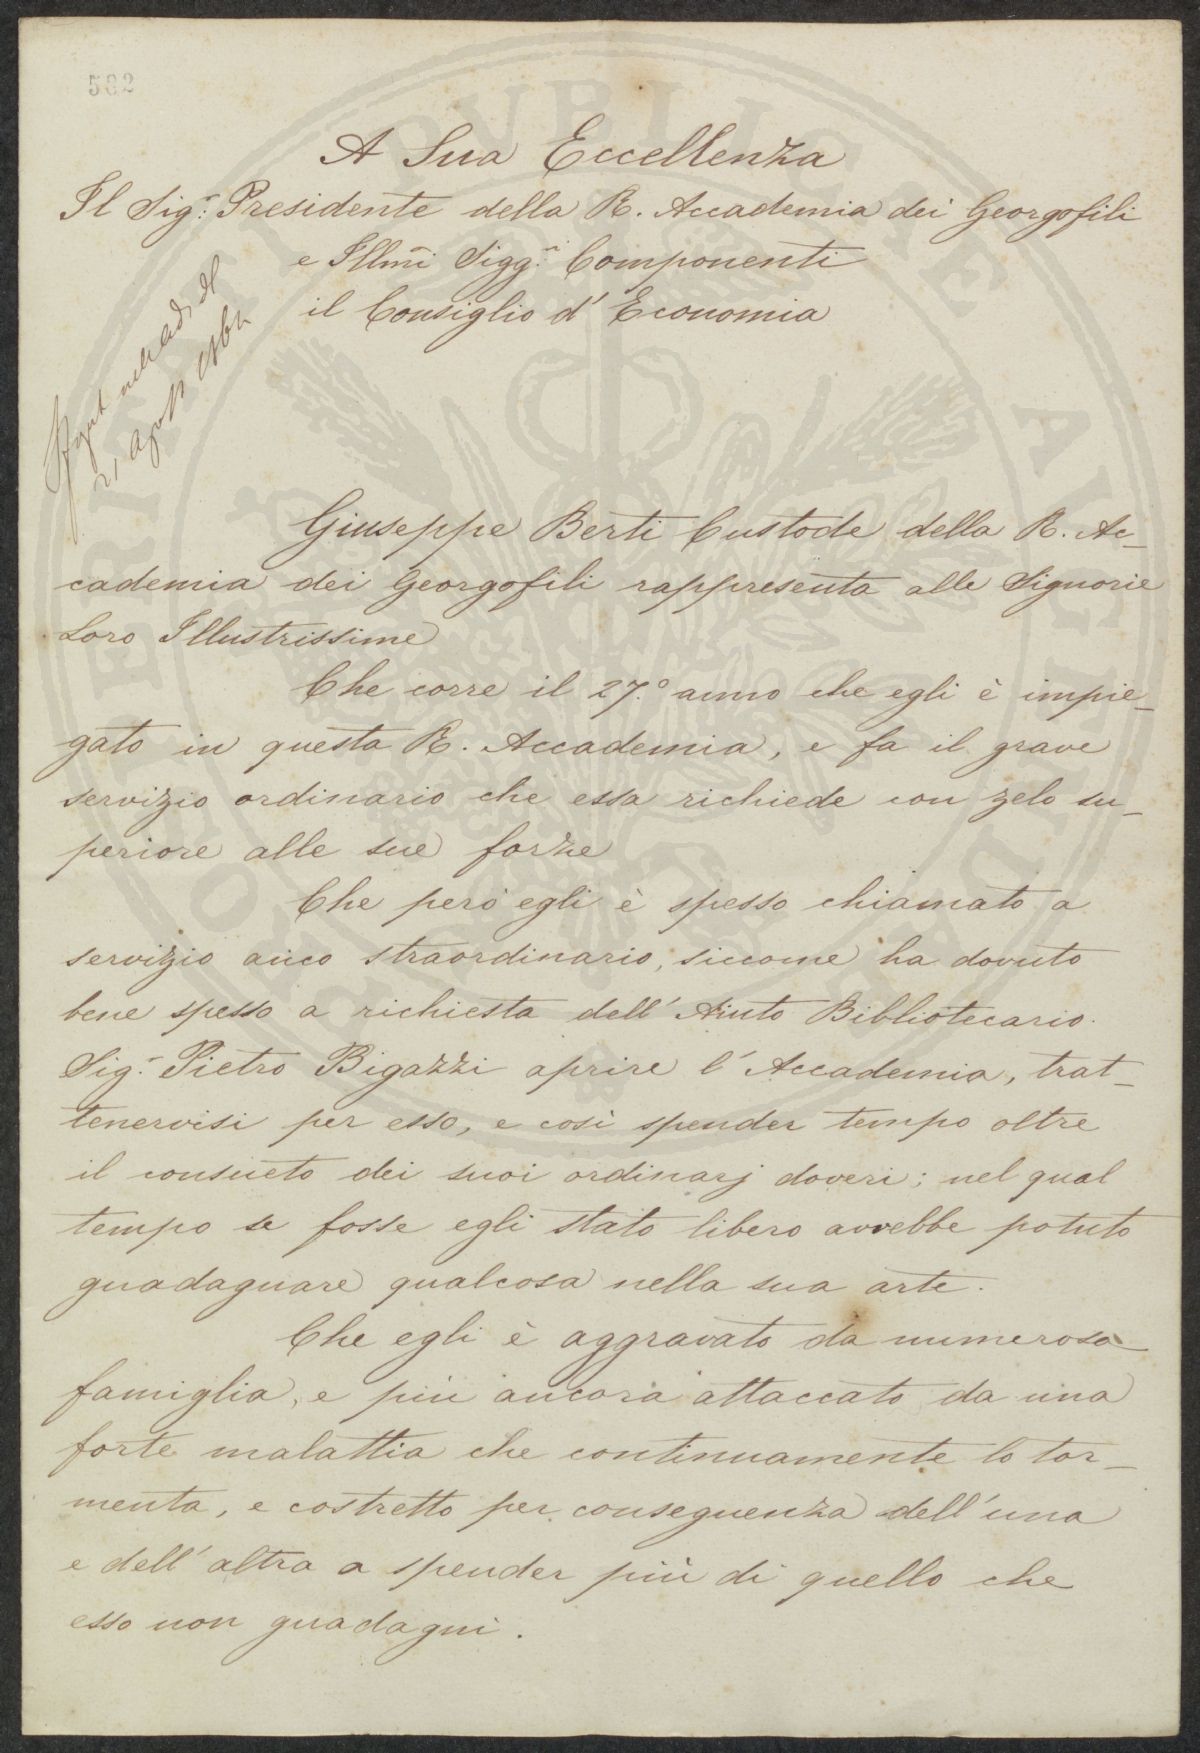 582
A Sua Eccellenza
Il Sig.r Presidente della R. Accademia dei Georgofili
e Illmi Sigg.ri Componenti
il Consiglio d' Economia
21 Agosto
Giuseppe Berti Custode della R. Ac-
cademia dei Georgofili rappresenta alle Signorie
Loro Illustrissime
Che corre il 27.o anno che egli è impie-
gato in questa R. Accademia, e fa il grave
servizio ordinario che essa richiede con zelo su-
periore alle sue forze
Che però egli è spesso chiamato a
servizio anco straordinario, siccome ha dovuto
bene spesso a richiesta dell' Aiuto Bibliotecario
Sig.r Pietro Bigazzi aprire l' Accademia, trat-
tenervisi per esso, e così spender tempo oltre
il consueto dei suoi ordinarj doveri; nel qual
tempo se fosse egli stato libero avrebbe potuto
guadagnare qualcosa nella sua arte.
Che egli è aggravato da numerosa
famiglia, e più ancora attaccato da una
forte malattia che continuamente lo tor-
menta, e costretto per conseguenza dell' una
e dell' altra a spender più di quello che
esso non guadagni.